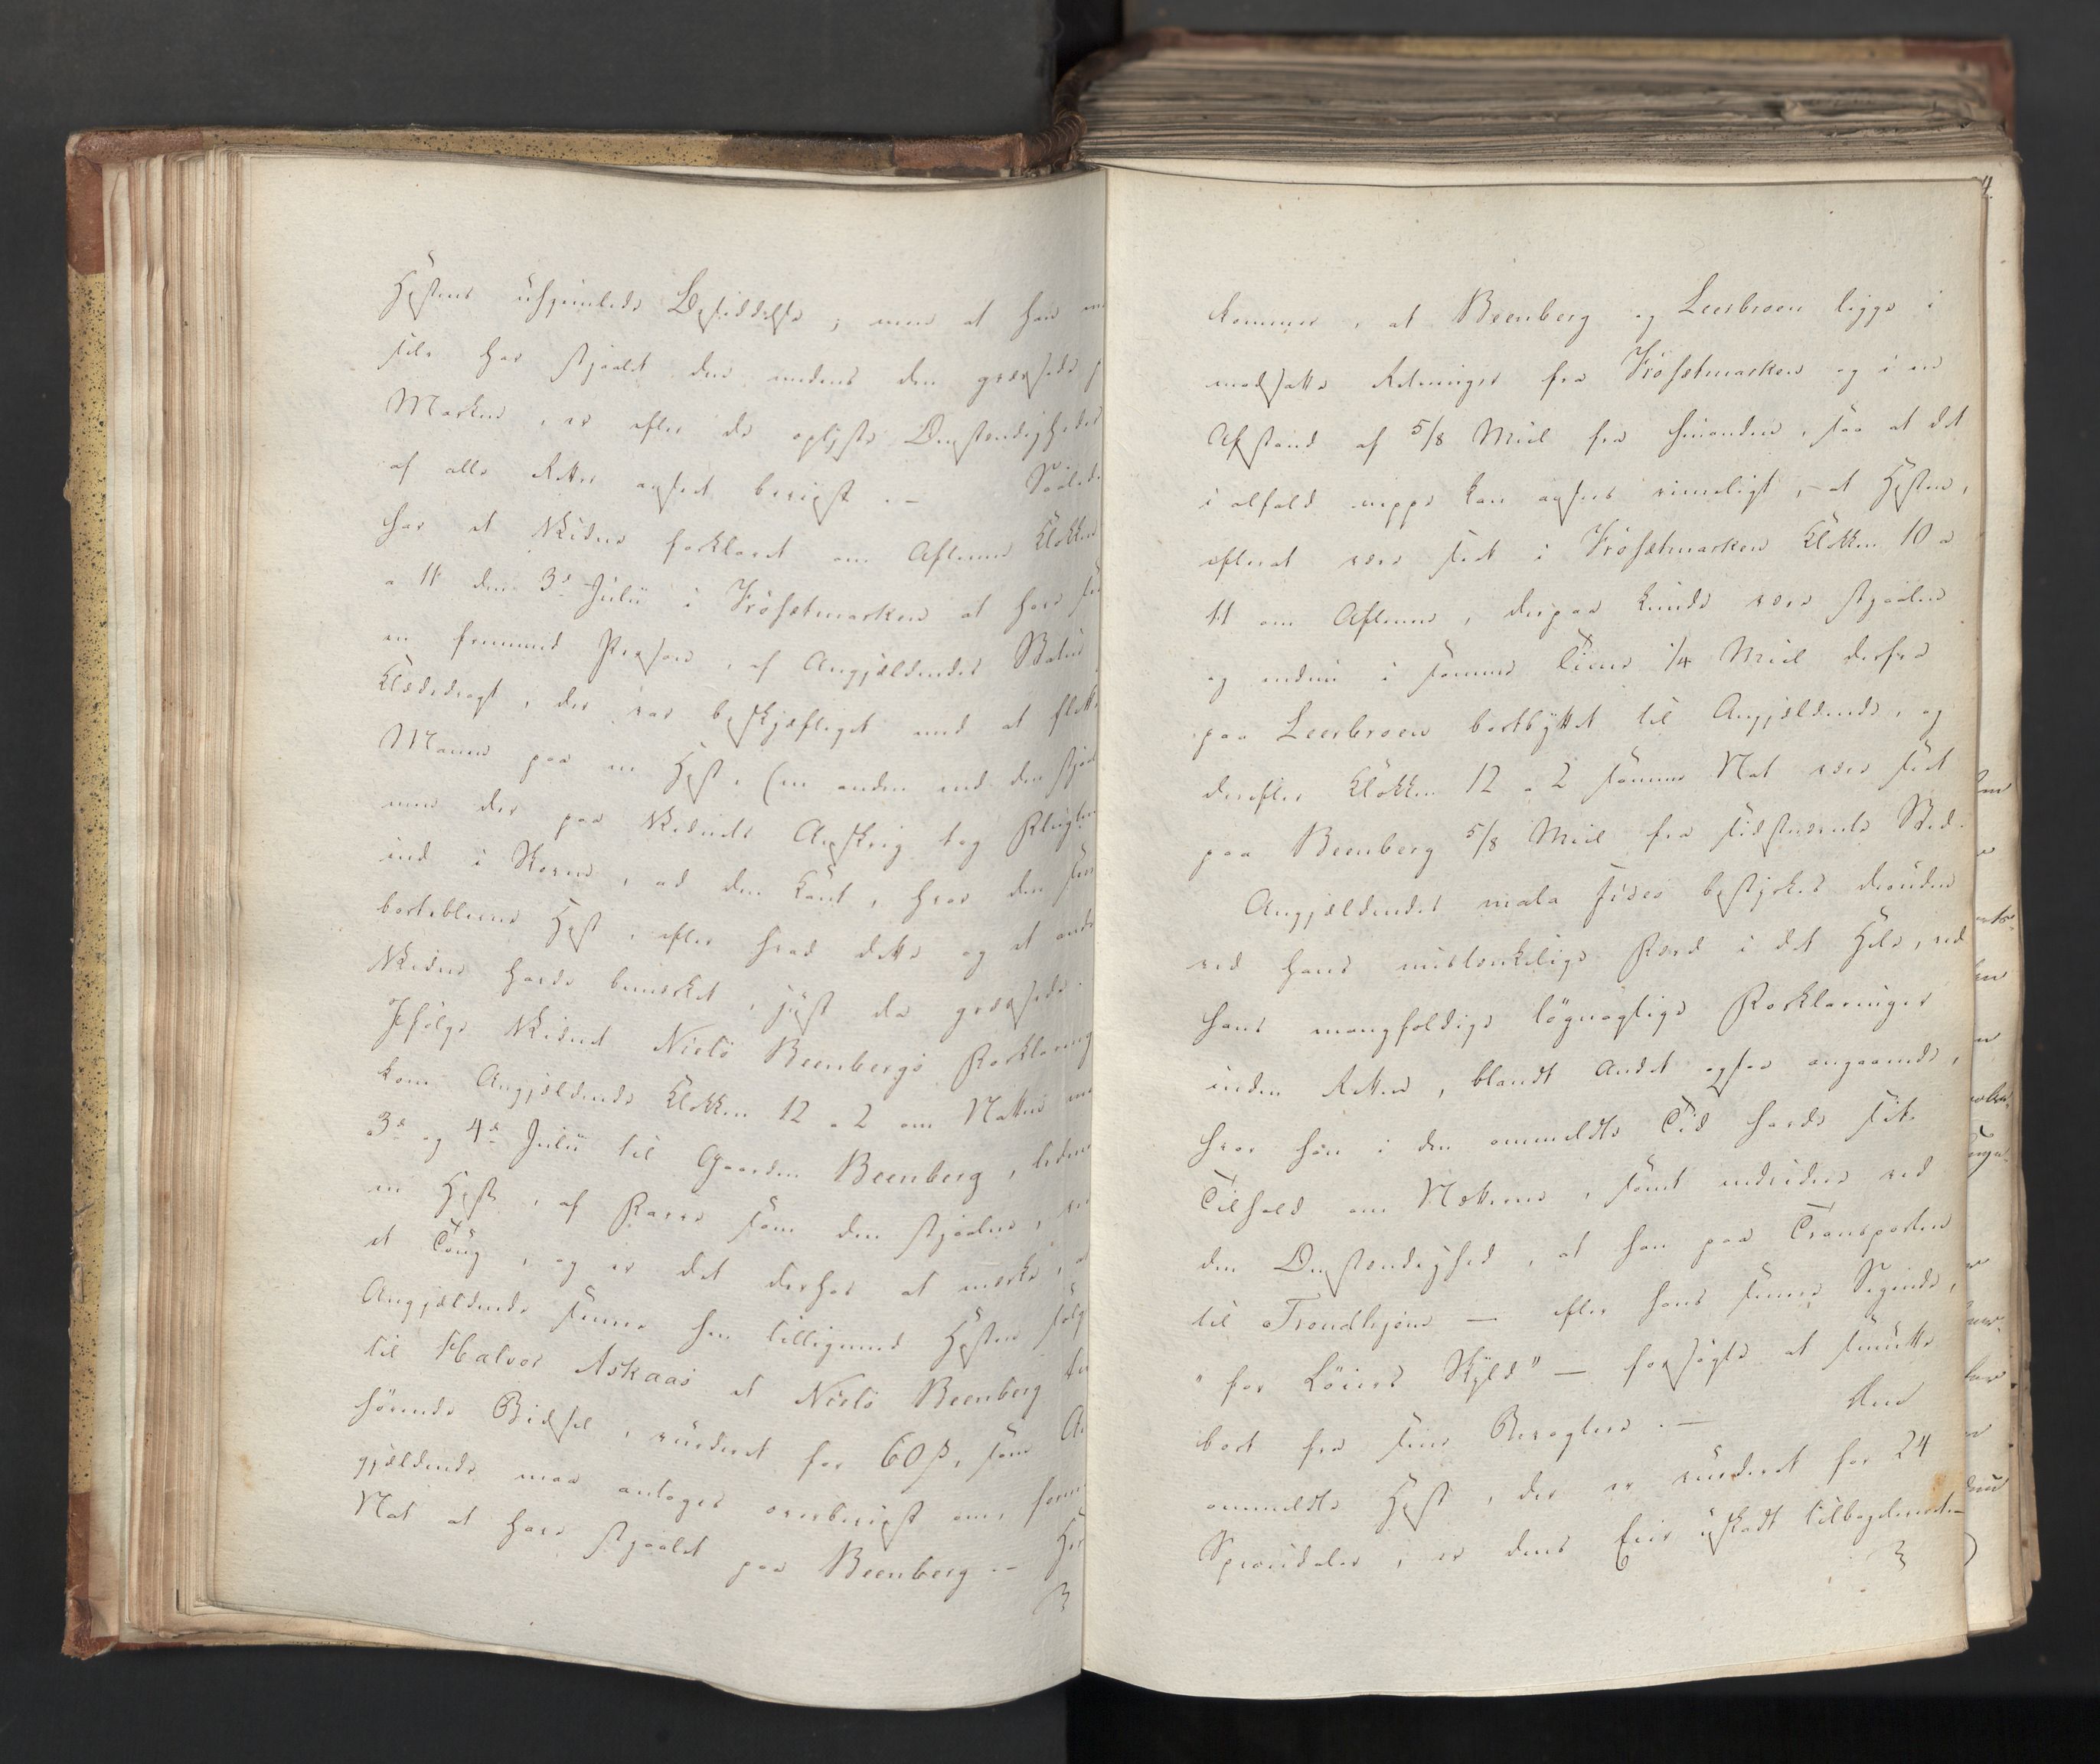 Hestens uhjemlede Besiddelse; men at han
selv har stjaalet den medens den græssede
Marken, er efter de oplyste Omstændigheder
af alle Retter anseet beviist. — Saaled
har et Vidne forklaret om Aftenen Klokken
a 11 den 3d Julii i Frösetmarken at have
en fremmed Person, af Angjældendes Statur
Klædedragt, der var beskjæftiget med at flette
Manen paa en Hest, (en anden end den stjaal
men der paa Vidnets Anskrig tog Flugten
ind i Skoven, ad den Kant, hvor den
bortblevne Hest, efter hvad dette og et andet
Vidne havde bemærket, just da græssede.
Ifølge Vidnet Niels Beenbergs Forklaring
kom Angjældende Klokken 12 a 2 om Natten
3d og 4d Julii til Gaarden Beenberg, ledende
en Hest, af Farve som den stjaalne,
et Toug, og er det derhos at mærke,
Angjældende senere hen tilligemed Hesten solg
til Halvor Askaas et Niels Beenberg
hörende Bidsel, vurderet for 60 ß, som An
gjældende maa antages overbeviist om, samme
Nat at have stjaalet paa Beenberg. — Her
kommer, at Beenberg og Leerbroen ligge i
modsatte Retninger fra Frösetmarken og i en
Afstand af 5/8 Miil fra hinanden, saa at det
i alfald neppe kan ansees rimeligt, at Hesten,
efterat være seet i Frösetmarken Klokken 10 a
11 om Aftenen, derpaa kunde være stjaalen
og endnu i samme Time 1/4 Miil derfra
paa Leerbroen bortbyttet til Angjældende, og
derefter Klokken 12 a 2 samme Nat være seet
paa Beenberg 5/8 Miil fra sidstnævnte Sted.
Angjældendes mala fides bestyrkes desuden
ved hans mistænkelige Færd i det Hele, ved
hans mangfoldige lögnagtige Forklaringer
inden Retten, blandt Andet ogsaa angaaende,
hvor han i den ommeldte Tid havde sit
Tilhold om Nætterne, samt endvidere ved
den Omstændighed, at han paa Transporten
til Trondhjem — efter hans senere Sigende,
"for Löiers Skyld" — forsögte at smutte
bort fra sine Bevogtere. — Den
ommeldte Hest, der er vurderet for 24
Speciedaler, er dens Eier uskadt tilbageleveret